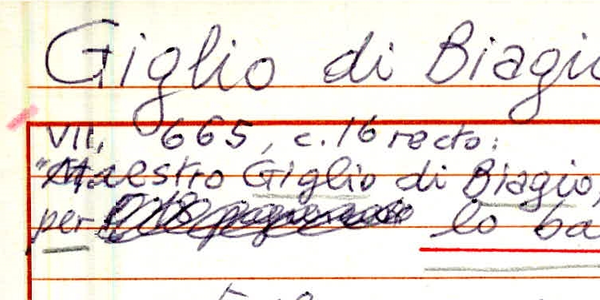 Giglio di Biagio
VII, 665, c. 16 recto:
"Maestro Giglio di Biagio,
per lo ba